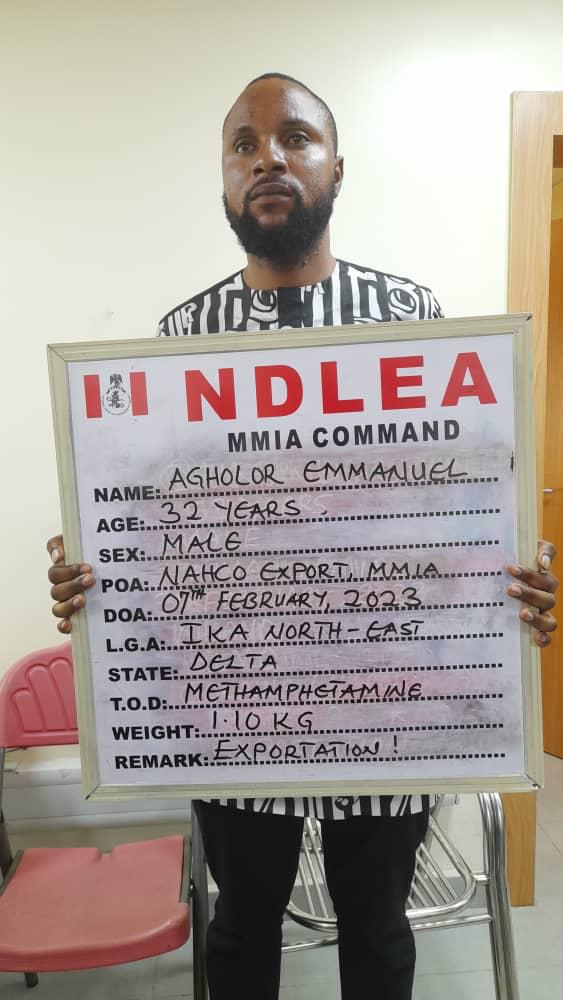 NDLEA
MMIA COMMAND
NAME: AGHOLOR EMMANUEL
AGE: 32 YEARS
SEX: MALE
POA: NAHCO EXPORT, MMIA
DOA: 07TH FEBRUARY, 2023
L.G.A: IKA NORTH-EAST
STATE: DELTA
T.O.D: METHAMPHETAMINE
WEIGHT: 1.10 KG
REMARK: EXPORTATION!